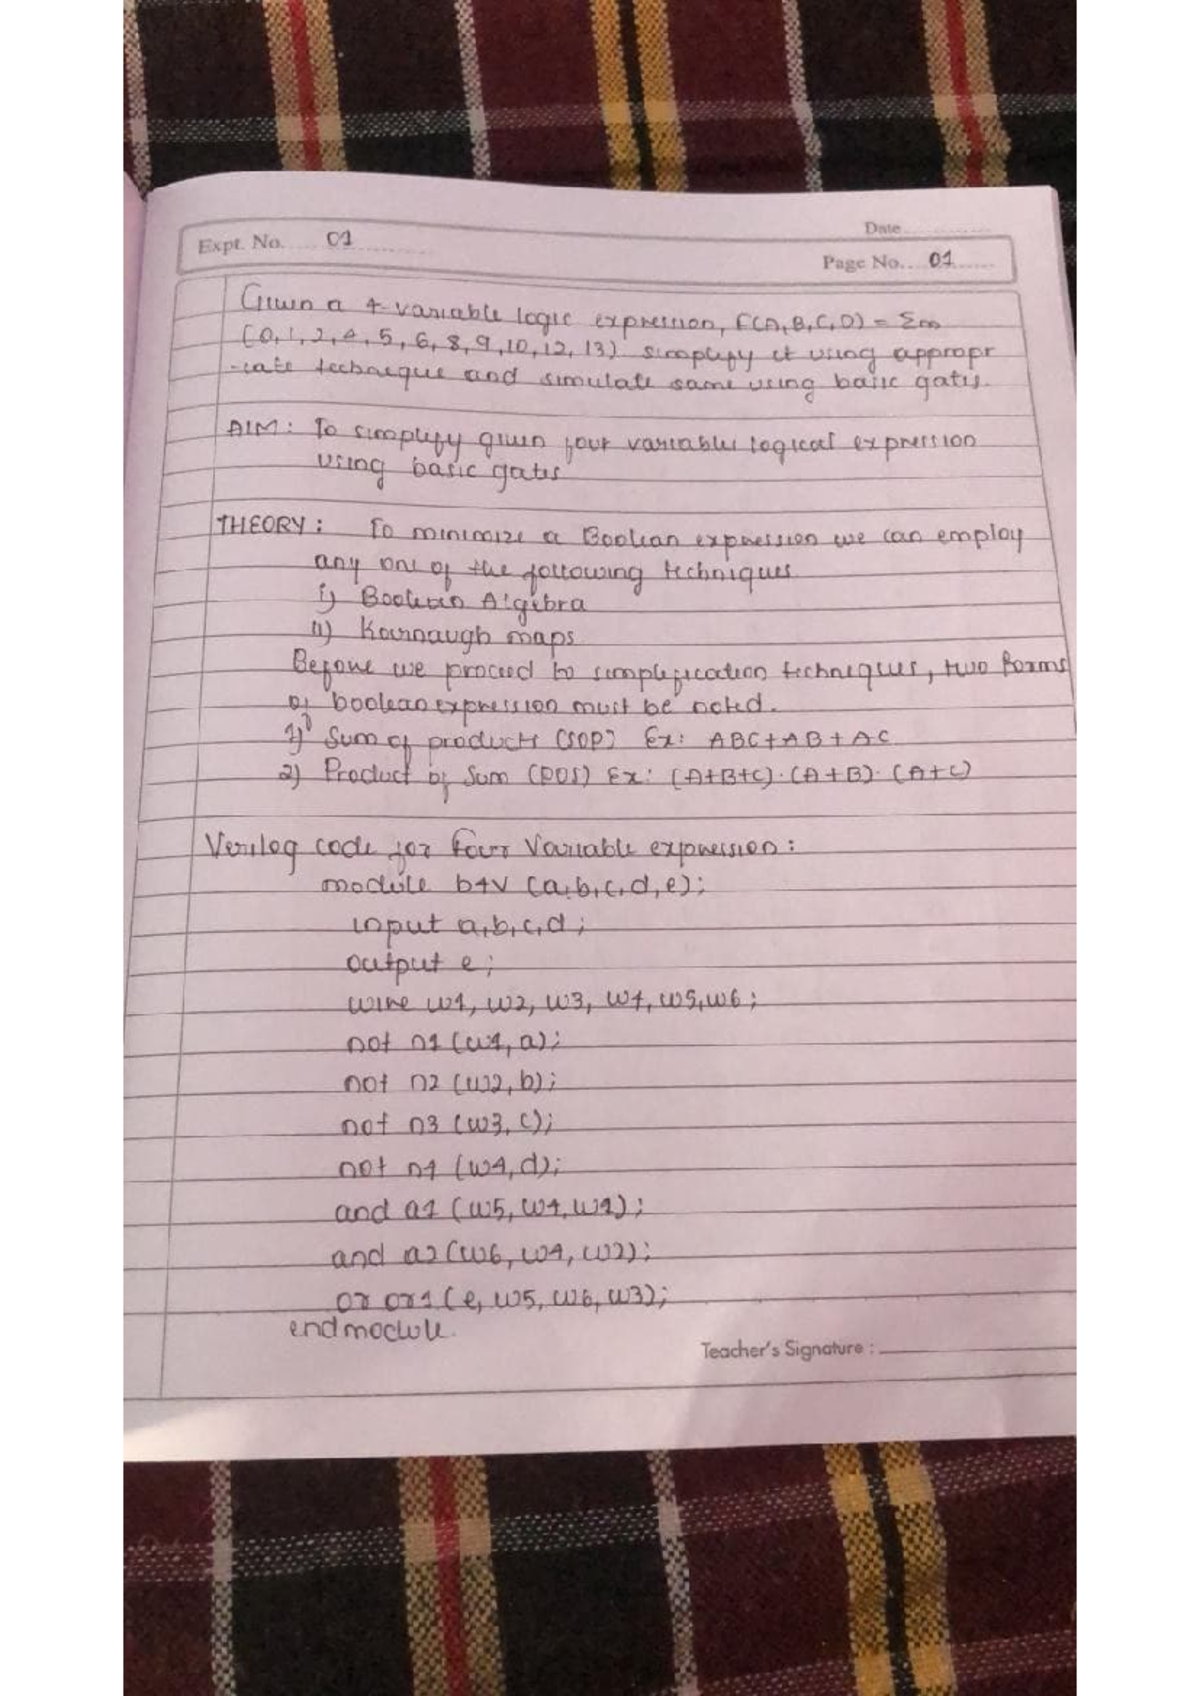 Expt. No. 01
Date
Page No. 01
Given a 4-variable logic expression, F(A,B,C,D) = Σm
(0,1,2,4,5,6,8,9,10,12,13) simplify it using appropr
-iate technique and simulate same using basic gates.
AIM: To simplify given four variables logical expression
using basic gates
THEORY: To minimize a Boolean expression we can employ
any one of the following techniques
i) Boolean Algebra
ii) Karnaugh maps
Before we proceed to simplification techniques, two forms
of boolean expression must be noted.
1) Sum of products (SOP) Ex: ABC+AB+AC
2) Product of Sum (POS) Ex: (A+B+C).(A+B).(A+C)
Verilog code for Four Variable expression:
module b4v (a,b,c,d,e);
input a,b,c,d;
output e;
wire w1, w2, w3, w4, w5,w6;
not n1 (w1,a);
not n2 (w2,b);
not n3 (w3,c);
not n4 (w4,d);
and a1 (w5,w4,w1);
and a2(w6,w4,w2);
or or1 (e, w5, w6, w3);
endmodule.
Teacher's Signature :